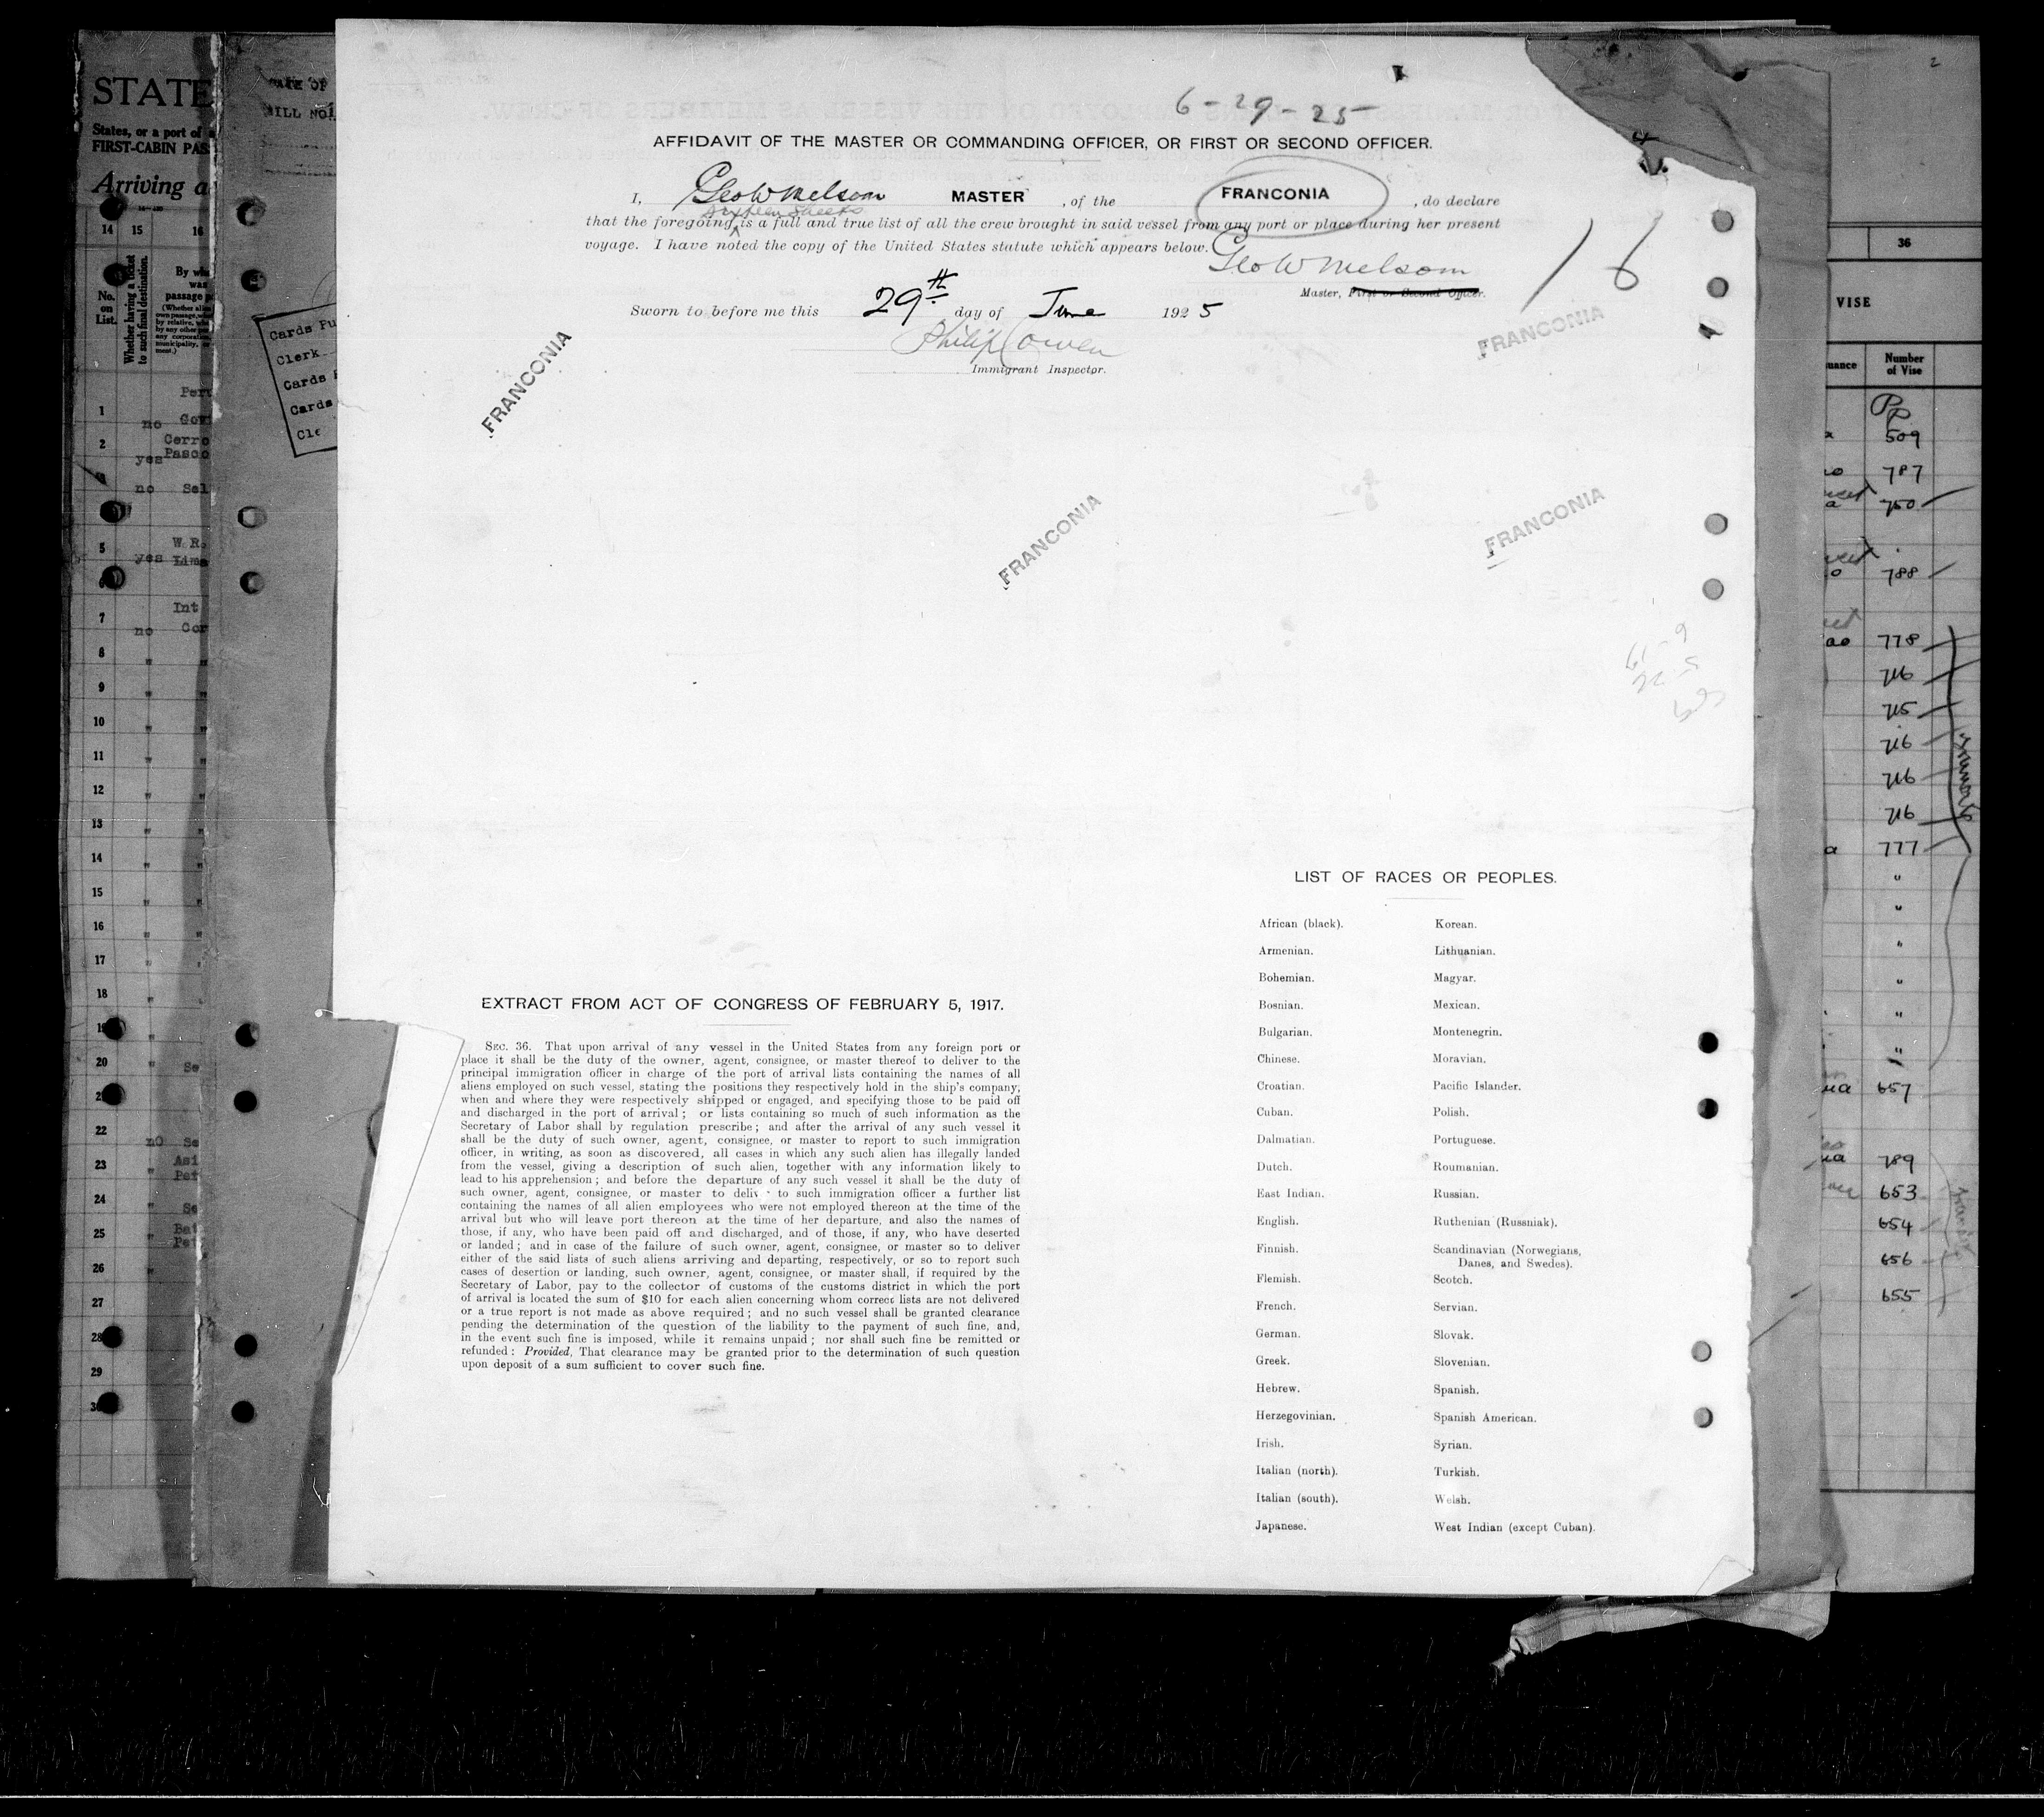 6-29-25
AFFIDAVIT OF THE MASTER OR COMMANDING OFFICER, OR FIRST OR SECOND OFFICER.
I, Geo W Melsom MASTER, of the FRANCONIA, do declare
sixteen sheets
that the foregoing is a full and true list of all the crew brought in said vessel from any port or place during her present
voyage. I have noted the copy of the United States statute which appears below.
Geo W Melsom
Master, First or Second Officer.
16
Sworn to before me this 29th day of June 1925
Philip Cowen
Immigrant Inspector.
FRANCONIA
FRANCONIA
FRANCONIA
FRANCONIA
EXTRACT FROM ACT OF CONGRESS OF FEBRUARY 5, 1917.
SEC. 36. That upon arrival of any vessel in the United States from any foreign port or
place it shall be the duty of the owner, agent, consignee, or master thereof to deliver to the
principal immigration officer in charge of the port of arrival lists containing the names of all
aliens employed on such vessel, stating the positions they respectively hold in the ship's company,
when and where they were respectively shipped or engaged, and specifying those to be paid off
and discharged in the port of arrival; or lists containing so much of such information as the
Secretary of Labor shall by regulation prescribe; and after the arrival of any such vessel it
shall be the duty of such owner, agent, consignee, or master to report to such immigration
officer, in writing, as soon as discovered, all cases in which any such alien has illegally landed
from the vessel, giving a description of such alien, together with any information likely to
lead to his apprehension; and before the departure of any such vessel it shall be the duty of
such owner, agent, consignee, or master to deliv to such immigration officer a further list
containing the names of all alien employees who were not employed thereon at the time of the
arrival but who will leave port thereon at the time of her departure, and also the names of
those, if any, who have been paid off and discharged, and of those, if any, who have deserted
or landed; and in case of the failure of such owner, agent, consignee, or master so to deliver
either of the said lists of such aliens arriving and departing, respectively, or so to report such
cases of desertion or landing, such owner, agent, consignee, or master shall, if required by the
Secretary of Labor, pay to the collector of customs of the customs district in which the port
of arrival is located the sum of $10 for each alien concerning whom correct lists are not delivered
or a true report is not made as above required; and no such vessel shall be granted clearance
pending the determination of the question of the liability to the payment of such fine, and,
in the event such fine is imposed, while it remains unpaid; nor shall such fine be remitted or
refunded: Provided, That clearance may be granted prior to the determination of such question
upon deposit of a sum sufficient to cover such fine.
LIST OF RACES OR PEOPLES.
African (black). Korean.
Armenian. Lithuanian.
Bohemian. Magyar.
Bosnian. Mexican.
Bulgarian. Montenegrin.
Chinese. Moravian.
Croatian. Pacific Islander.
Cuban. Polish.
Dalmatian. Portuguese.
Dutch. Roumanian.
East Indian. Russian.
English. Ruthenian (Russniak).
Finnish. Scandinavian (Norwegians,
Danes, and Swedes).
Flemish. Scotch.
French. Servian.
German. Slovak.
Greek. Slovenian.
Hebrew. Spanish.
Herzegovinian. Spanish American.
Irish. Syrian.
Italian (north). Turkish.
Italian (south). Welsh.
Japanese. West Indian (except Cuban).
STATE
States, or a port of
FIRST-CABIN PAS
Arriving a
14 15 16
No.
on
List.
Whether having a ticket
to such final destination.
By
was
passage
Cards
Clerk
Cards
Cards
1
no
2
Cerro
yes Pasco
no Sel
5
W.R.
yes Lima
Int
7
no Cor
8
9
10
11
12
13
14
15
16
17
18
20 Se
22 no Se
23 Asi
24 Se
25
26
27
28
29
2
36
VISE
Number
of Vise
509
787
750
788
778
716
715
716
716
716
777
657
789
653
654
656
655